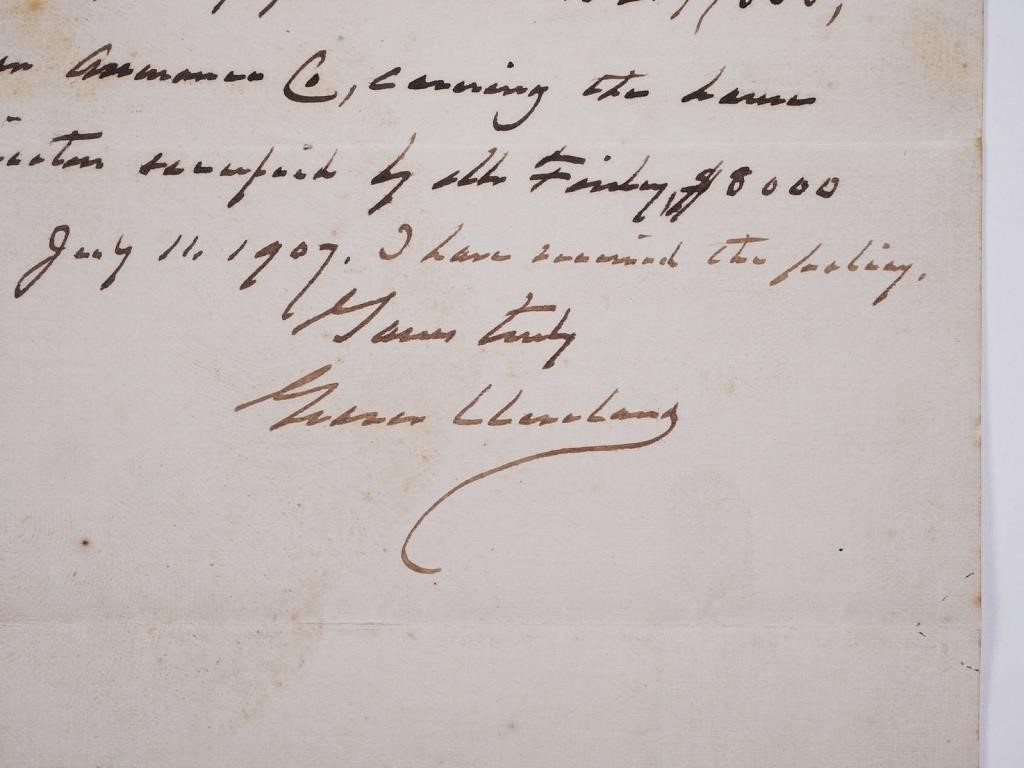 Assurance Co, covering the house
occupied by Mr Finley, $8000
July 11, 1907. I have received the policy.
Yours truly
Grover Cleveland